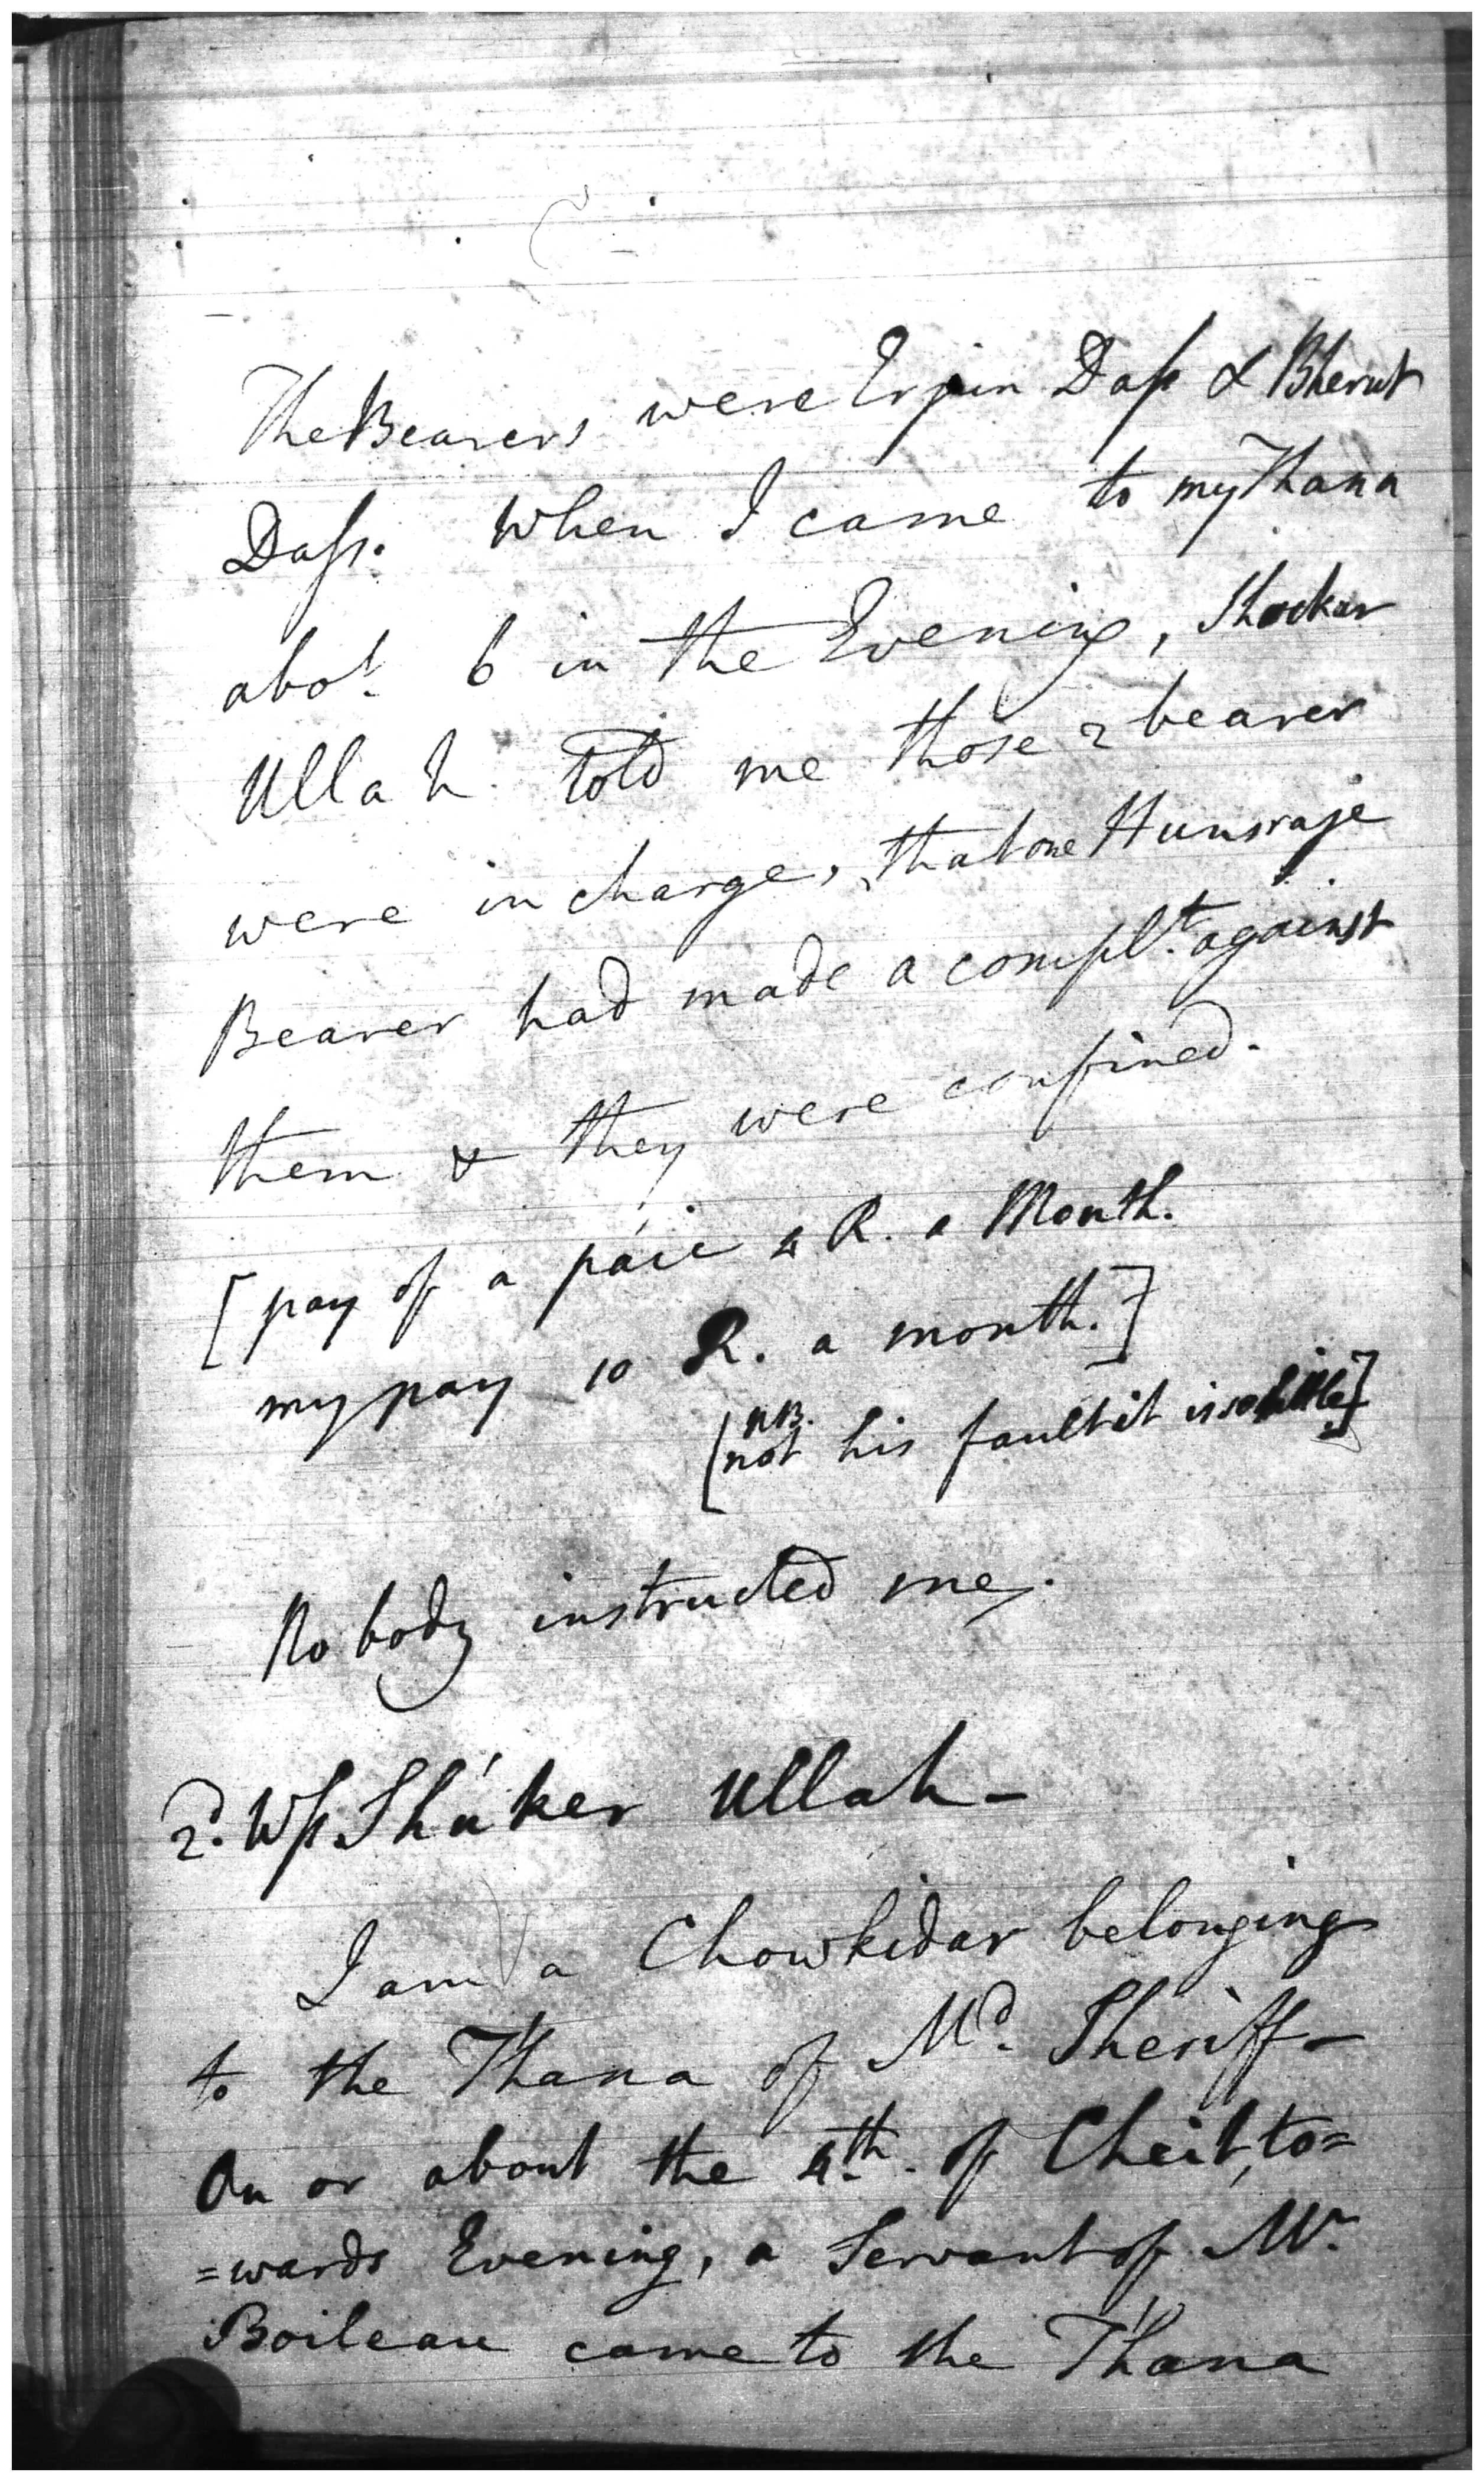 The Bearers were Erjun Dass & Bherut
Dass. When I came to my Thana
abot. 6 in the Evening, Shockur
Ullah told me those 2 bearer
were in charge, that one Hunsraje
Bearer had made a complt. against
them & they were confined.
[pay of a paic 4 R. a Month.
my pay 10 R. a month.]
[NB. not his fault it is so little]
No body instructed me.
2d. Wss. Sháker Ullah –
I am a Chowkidar belonging
to the Thana of Md. Sheriff –
On or about the 4th. of Cheit, to=
=wards Evening, a Servant of Mr.
Boileau came to the Thana